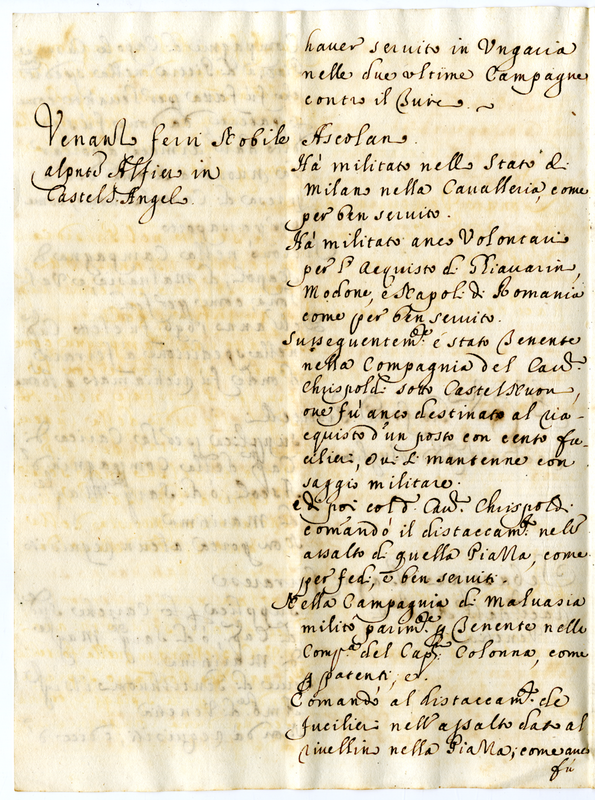 haver servito in Ungaria
nelle due ultime Campagne
contro il Turc
Venanz ferri Nobile Ascolan
al pnte Alfier in
Castel S. Angel
Hà militato nello Stato di
Milano nella Cavalleria, come
per ben servito.
Hà militato anco Volontari
per l' Acquisto di Chiavarin,
Modone, e Napoli di Romania
come per ben servito.
Susseguentem.te è stato Tenente
nella Compagnia del Cav.r
Chrispoldi sotto Castel Nuov,
ove fù anco destinato al ria-
cquisto d'un posto con cento fu-
cilieri, ove li mantenne con
saggio militare.
e di poi col d. Cav.r Chrispoldi
comandò il distaccam.to nell'
assalto di quella Piazza, come
per fedi, e ben serviti.
Nella Campagnia di Malvasia
militò parim.te p Tenente nella
Comp.a del Cap. Colonna, come
p patenti,
Comandò al distaccam.to de
fucilieri nell'assalto dato al
rivellin nella Piazza, come anco
fù